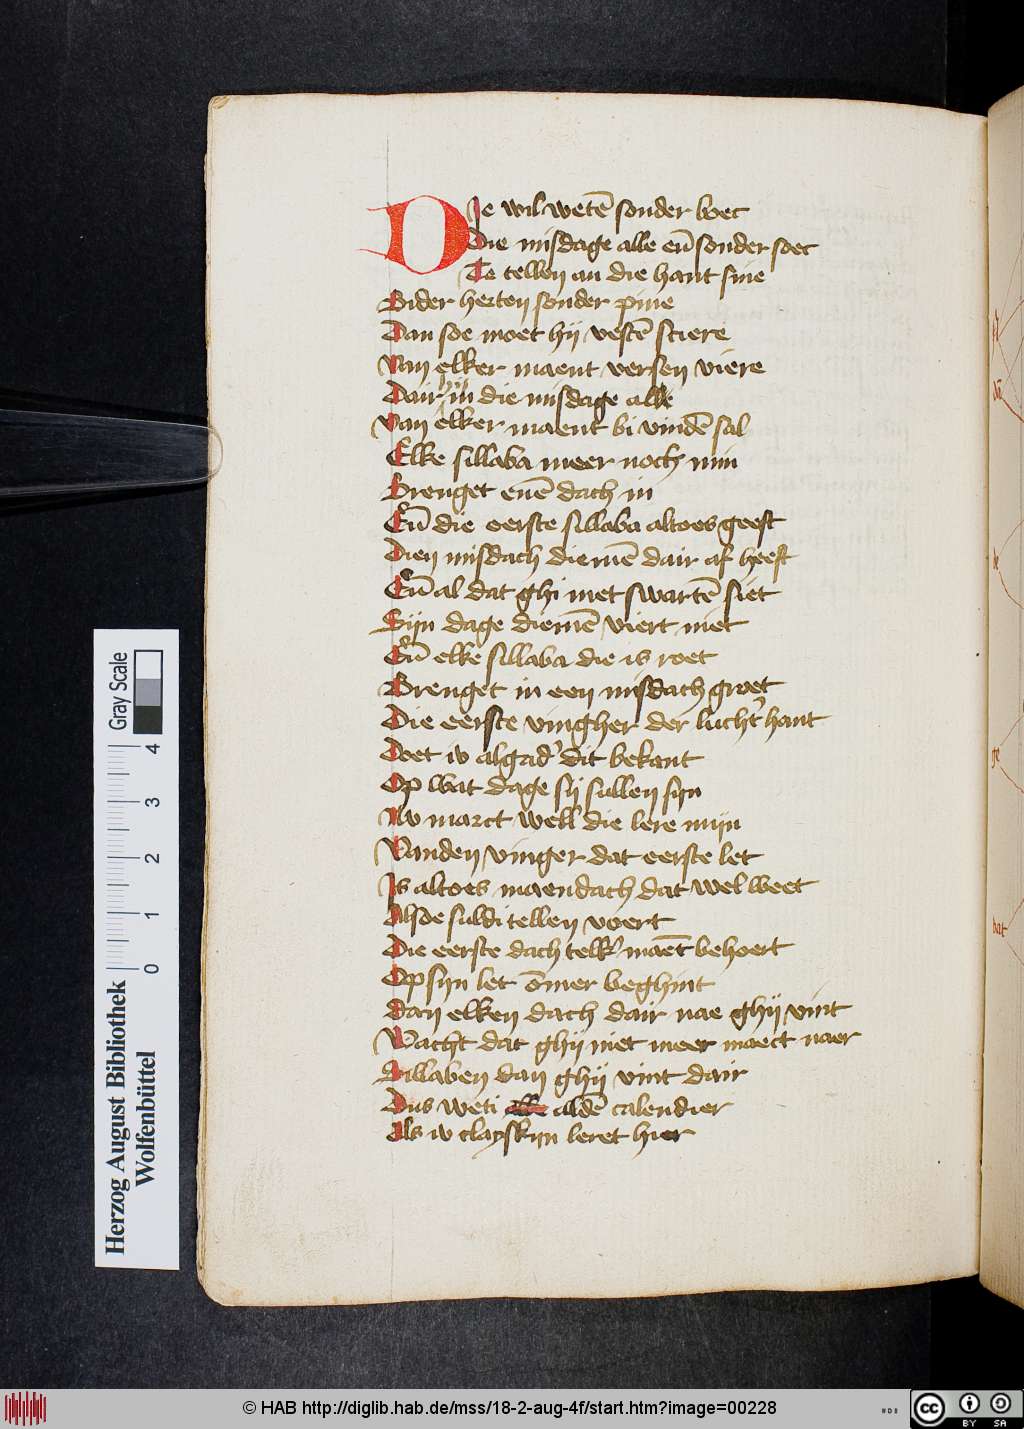 DIe wil wetē sonder boec
Die misdage alle eñ sonder soec
Te tellen an die hant sine
Bider herten sonder pine
Dan soe moet hij vestē sciere
Van elker maent versen viere
Dair hij in die misdage alle
Van elker maent bi vindē sal
Elke sillaba meer noch min
Brenget enē dach in
Eñ die eerste sillaba altoes geeft
Dien misdach diemē dair af heeft
Eñ al dat ghi met swartē siet
Sijn dage diemē viert niet
Eñ elke sillaba die is roet
Brenget in een misdach groet
Die eerste vingher der lucht' hant
Doet w algad' dit bekant
Op wat dage sij sullen sijn
Nv marct well die lere mijn
Vanden vinger dat eerste let
Is altoes maendach dat wel weet
Alsoe suldi tellen voert
Die eerste dach telk' maēt behoert
Op sijn let ōmer beghint
Dan elken dach dair nae ghij vint
Wacht dat ghij niet meer maect naer
Sillaben dan ghij vint dair
Dus weti aldē calendier
Als w clayskijn leret hier
Herzog August Bibliothek
Wolfenbüttel
Gray Scale
0 1 2 3 4
© HAB http://diglib.hab.de/mss/18-2-aug-4f/start.htm?image=00228
cc BY SA